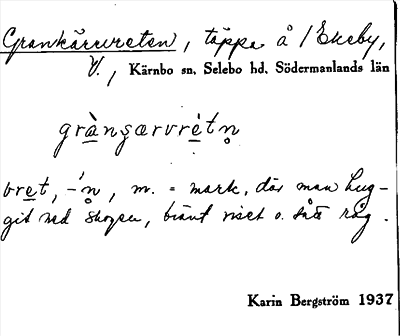 Grankärrvreten, täppa å /Ekeby,
V., Kärnbo sn, Selebo hd, Södermanlands län
gràngærvrètn̥
vret, -ń̥, m. = mark, där man hug-
git ned skogen, bränt riset o. sått råg.
Karin Bergström 1937